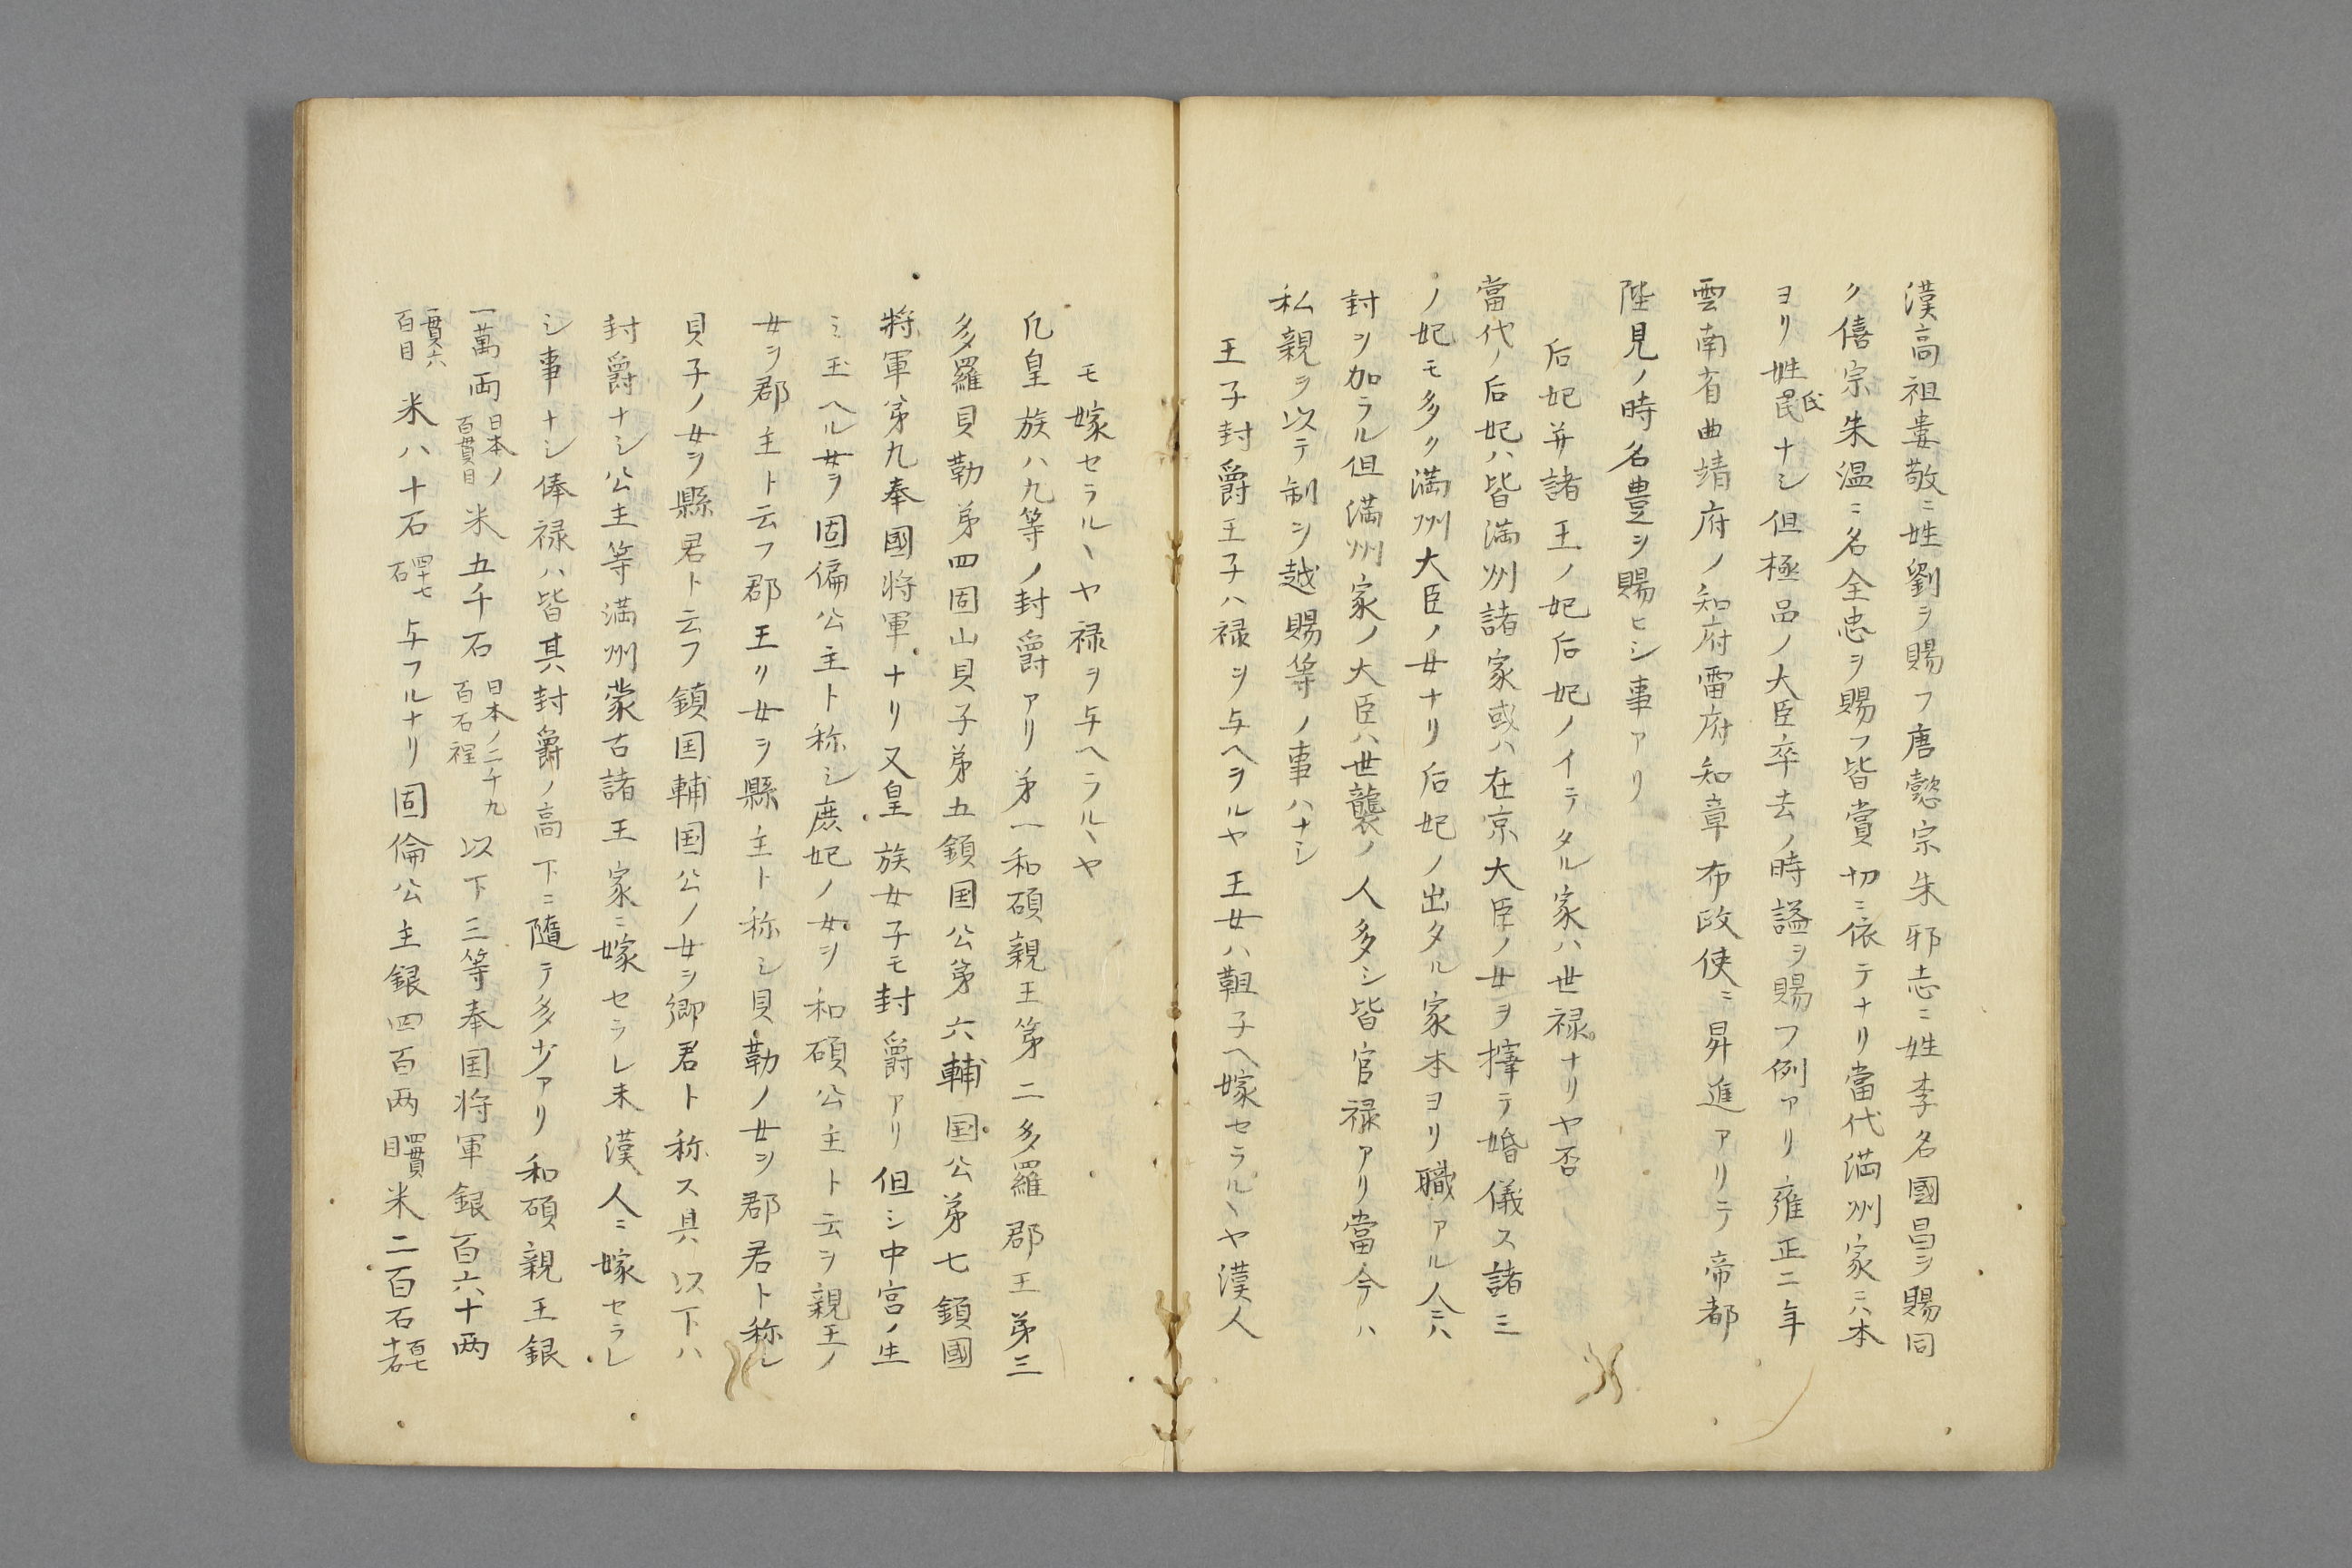 漢高祖婁敬ニ姓劉ヲ賜フ唐懿宗朱邪志ニ姓李名國昌ヲ賜同
ク僖宗朱温ニ名全忠ヲ賜フ皆賞切ニ依テナリ當代満州家ニハ本
ヨリ姓民氏ナシ但極品ノ大臣卒去ノ時謚ヲ賜フ例アリ雍正二年
雲南省曲靖府ノ知府雷府知章布政使ニ昇進アリテ帝都
陛見ノ時名豊ヲ賜ヒシ事アリ
后妃并諸王ノ妃后妃ノイテタル家ハ世禄ナリヤ否
當代ノ后妃ハ皆満州諸家或ハ在京大臣ノ女ヲ擇テ婚儀ス諸王
ノ妃モ多ク満州大臣ノ女ナリ后妃ノ出タル家本ヨリ職アル人ニハ
封ヲ加ラル但満州家ノ大臣ハ世襲ノ人多シ皆官禄アリ當今ハ
私親ヲ以テ制ヲ越賜等ノ事ハナシ
王子封爵王子ハ禄ヲ与ヘヲルヤ王女ハ靼子ヘ嫁セラルヽヤ漢人
モ嫁セラルヽヤ禄ヲ与ヘラルヽヤ
凡皇族ハ九等ノ封爵アリ第一和碩親王第二多羅郡王第三
多羅貝勒第四固山貝子第五鎮国公第六輔国公第七鎮國
将軍第九奉國将軍ナリ又皇族女子モ封爵アリ但シ中宮ノ生
ミ玉ヘル女ヲ固倫公主ト称シ庶妃ノ女ヲ和碩公主ト云ヲ親王ノ
女ヲ郡主ト云フ郡王リ女ヲ縣主ト称シ貝勒ノ女ヲ郡君ト称シ
貝子ノ女ヲ縣君ト云フ鎮国輔国公ノ女ヲ郷君ト称ス具以下ハ
封爵ナシ公主等満州蒙古諸王家ニ嫁セラレ未漢人ニ嫁セラレ
シ事ナシ俸禄ハ皆其封爵ノ高下ニ隨テ多少アリ和碩親王銀
一萬両日本ノ百貫目米五千石日本ノ二千九百石程以下三等奉国将軍銀百六十両
一貫六百目米八十石四十七石与フルナリ固倫公主銀四百両四貫目米二百石百七十石